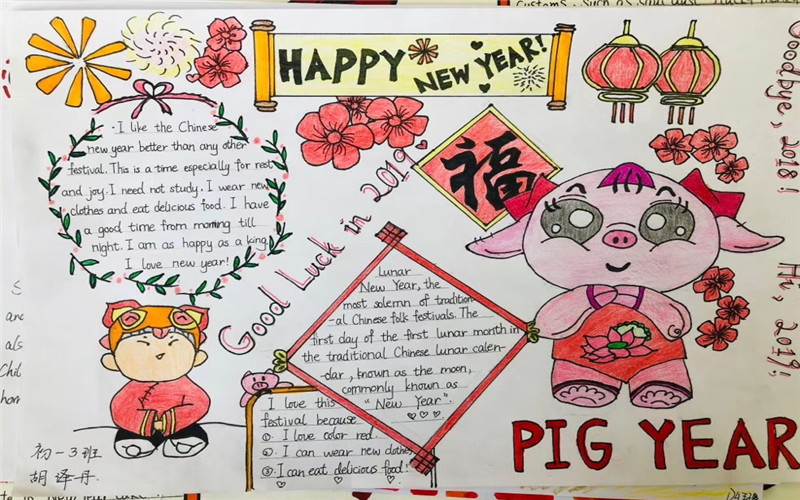 HAPPY
NEW YEAR!
Goodbye, 2018!
Hi, 2019!
I like the Chinese
new year better than any other
festival. This is a time especially for rest
and joy. I need not study. I wear new
clothes and eat delicious food. I have
a good time from morning till
night. I am as happy as a king.
I love new year!
Good Luck in 2019
福
Lunar
New Year, the
most solemn of tradition
-al Chinese folk festivals. The
first day of the first lunar month in
the traditional Chinese lunar calen-
-dar, known as the moon,
commonly known as
"New Year".
I love this
festival because
①. I love color red.
②. I can wear new clothes
③. I can eat delicious food!
PIG YEAR
初一3班
胡译丹